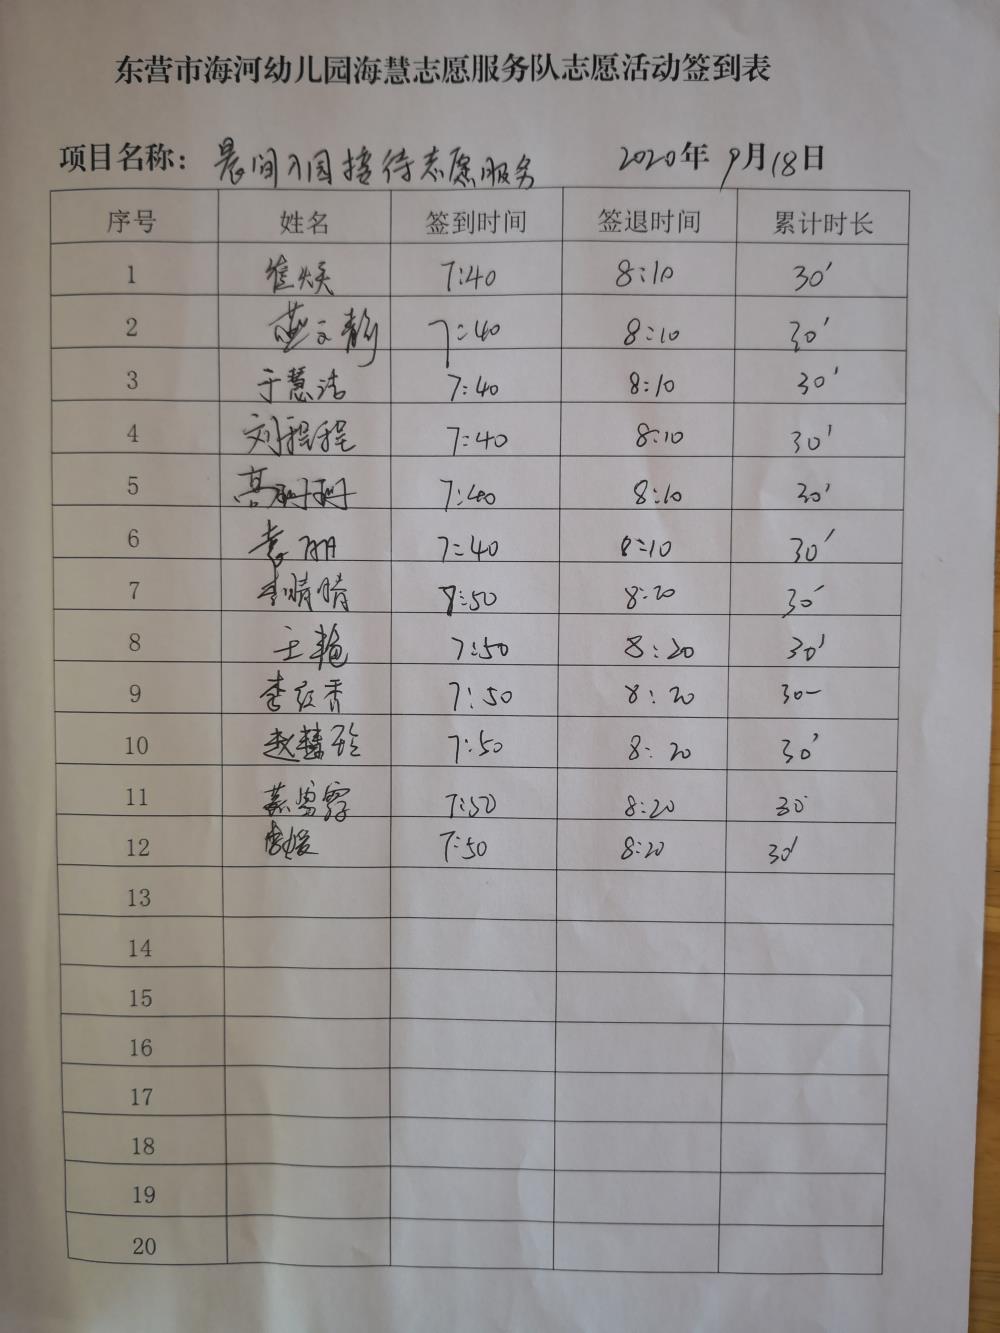 东营市海河幼儿园海慧志愿服务队志愿活动签到表
项目名称：晨间入园接待志愿服务 2020年9月18日
序号 姓名 签到时间 签退时间 累计时长
1 崔焕 7:40 8:10 30′
2 燕文静 7:40 8:10 30′
3 于慧洁 7:40 8:10 30′
4 刘程程 7:40 8:10 30′
5 高珊珊 7:40 8:10 30′
6 袁丽 7:40 8:10 30′
7 李晴晴 7:50 8:20 30′
8 王艳 7:50 8:20 30′
9 李红香 7:50 8:20 30
10 赵慧玲 7:50 8:20 30′
11 7:50 8:20 30
12 7:50 8:20 30′
13
14
15
16
17
18
19
20